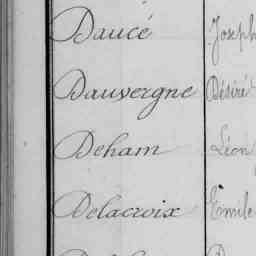 Daucé Joseph
Dauvergne Désiré
Deham Léon
Delacroix Emile